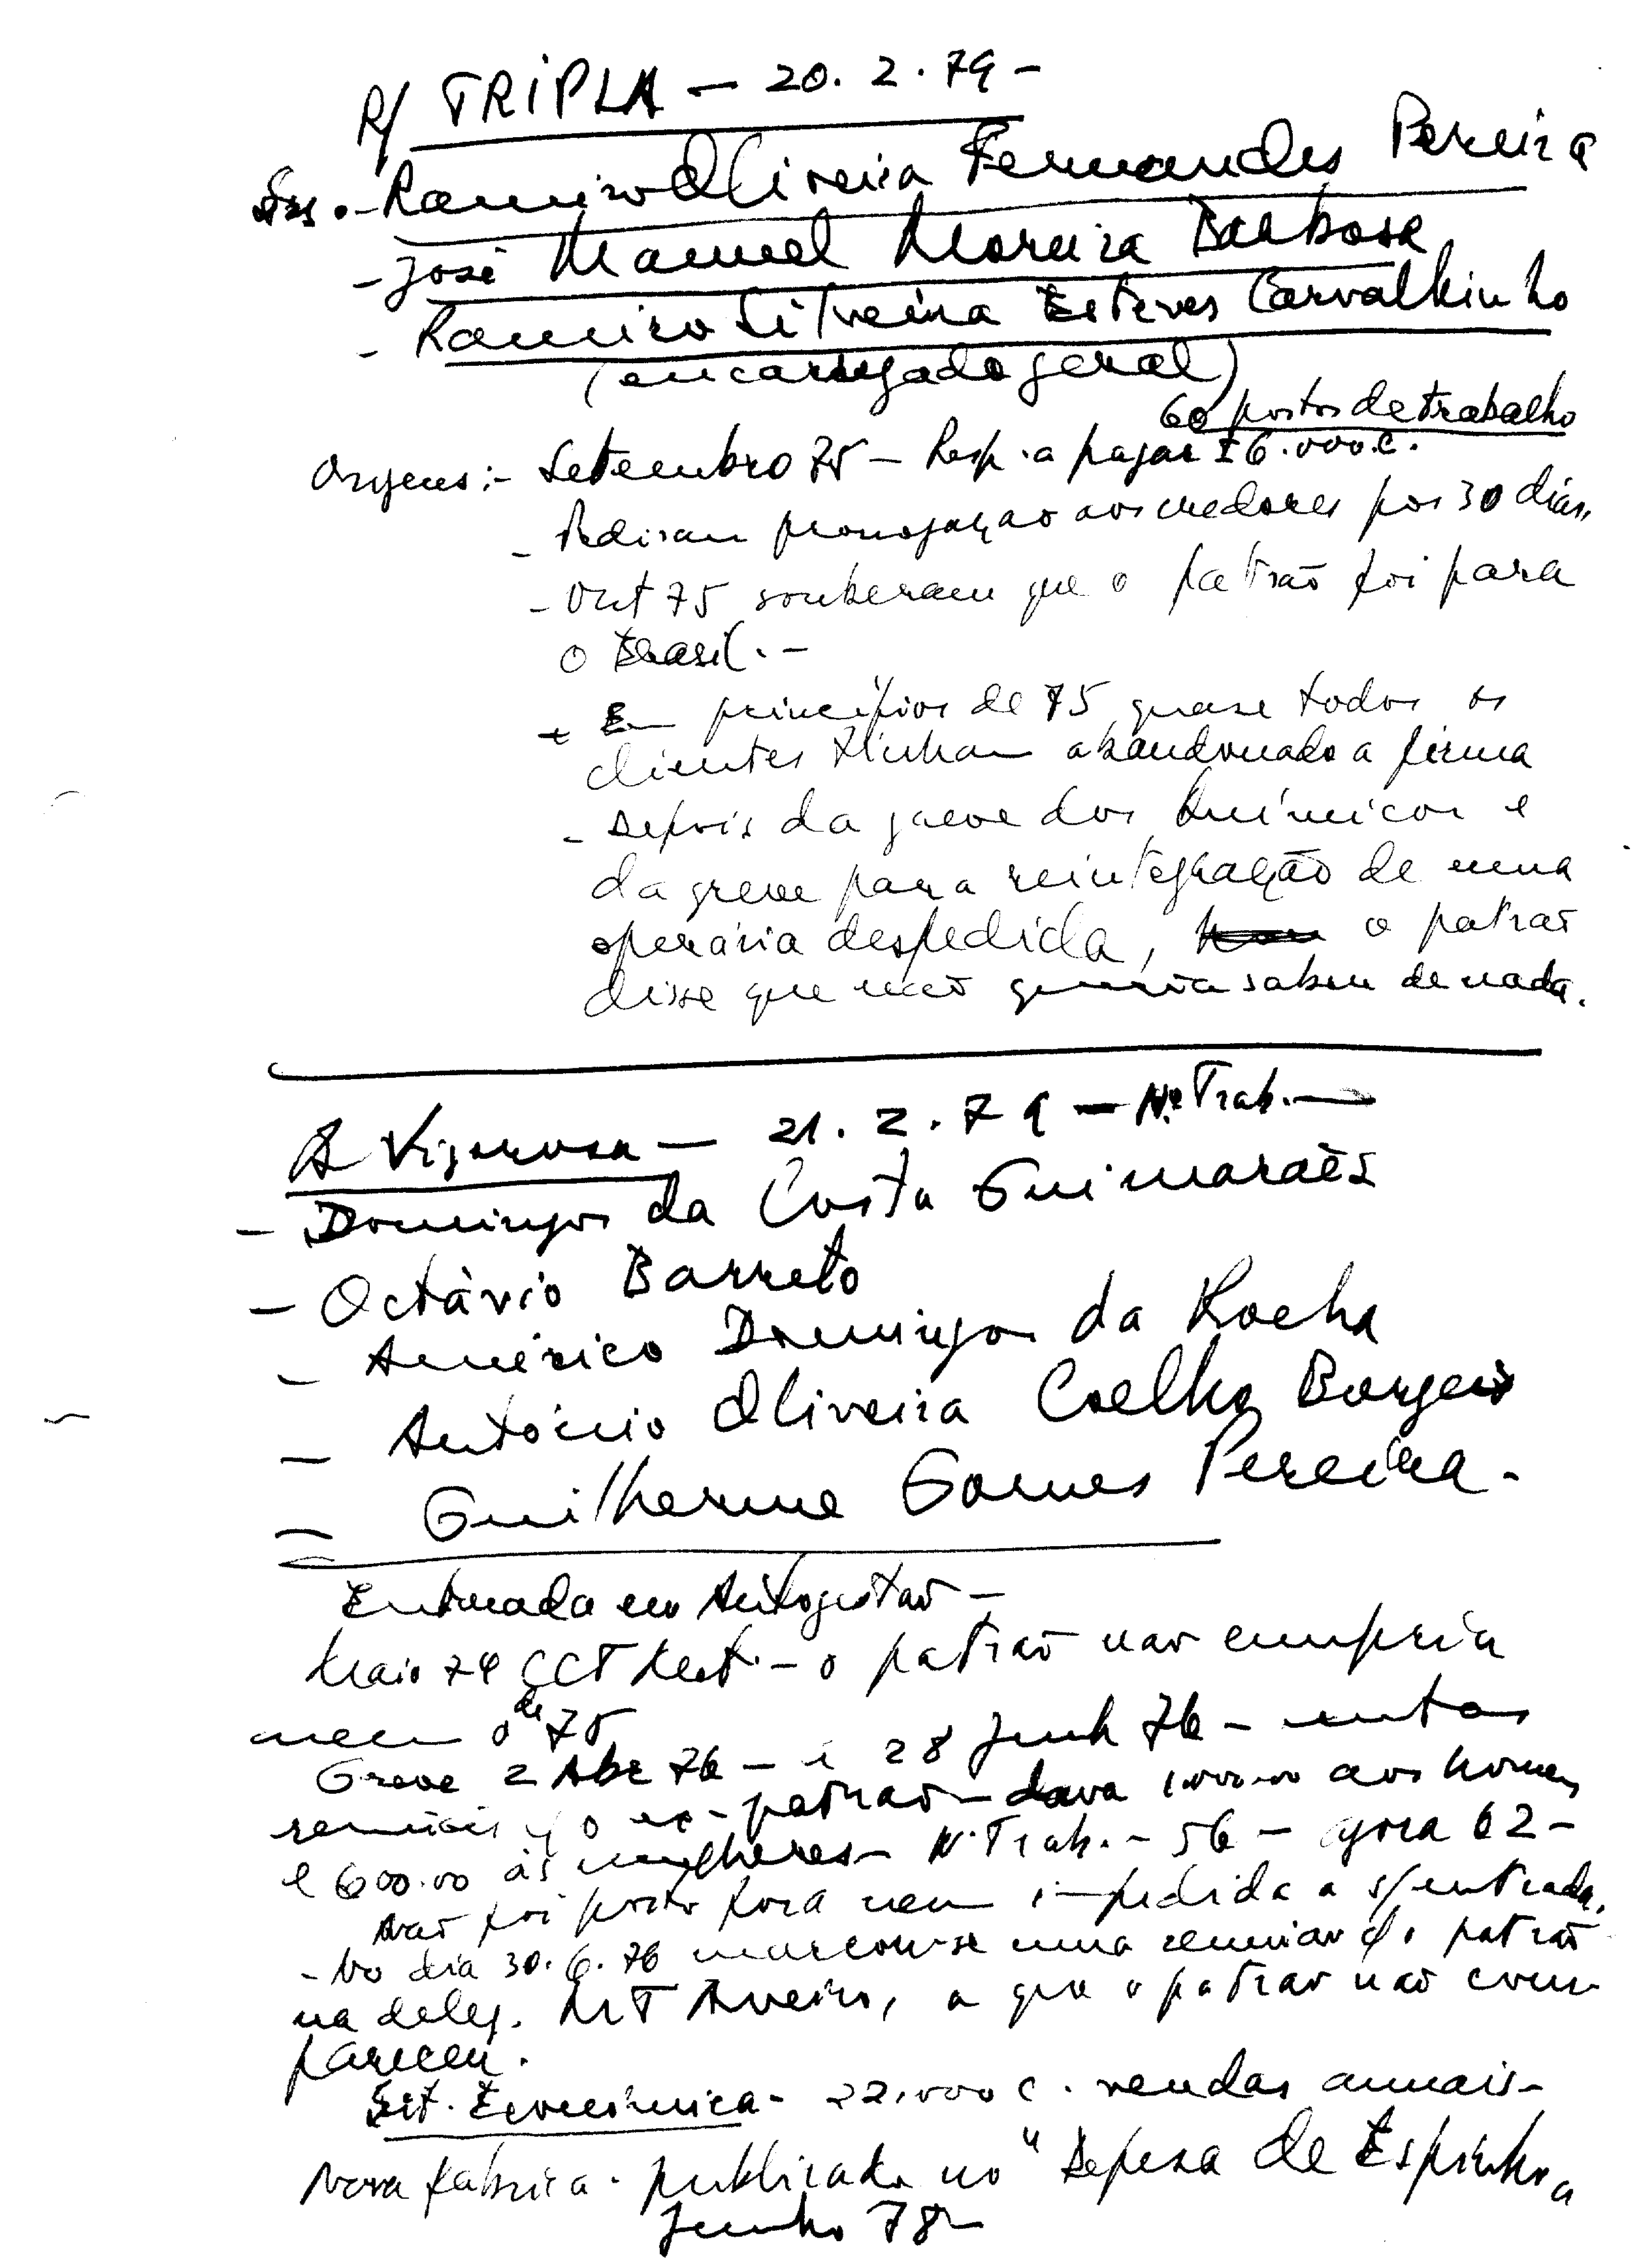 P/ TRIPLA - 20.2.79-
Srs.- Ramiro Oliveira Fernandes Pereira
- José Manuel Moreira Barbosa
- Ramiro Silveira Esteves Carvalhinho
(encarregado geral)
60 postos de trabalho
Origens:- Setembro 75 - Resp. a pagar ± 6.000.c.
- Pediram prorrogação aos credores por 30 dias.
- Out 75 souberam que o patrão foi para
o Brasil.-
- Em princípios de 75 quase todos os
clientes tinham abandonado a firma
- Depois da greve dos Químicos e
da greve para reintegração de uma
operária despedida, o patrão
disse que não queria saber de nada.
A Vigorosa - 21.2.79 - Nº Trab. -
- Domingos da Costa Guimarães
- Octávio Barreto
- Américo Domingos da Rocha
- António Oliveira Coelho Borges
- Guilherme Gomes Pereira.
Entrada em Autogestão -
Maio 74 CCT - o patrão não cumpria
nem o de 75
Greve 2 Abr 76 - e 28 Junh 76 -
o ex-patrão - dava 1.000.00 aos homens
e 600.00 às mulheres - N. Trab. - 56 - agora 62 -
Não foi posto fora nem impedida a s/ entrada.
- No dia 30.6.76 marcou-se uma reunião c/ o patrão
na deleg. MT Aveiro, a que o patrão não com-
pareceu.
Sit. Económica - 22.000 c. vendas anuais -
Nova fábrica - publicada no "Defesa de Espinho"
Junho 78